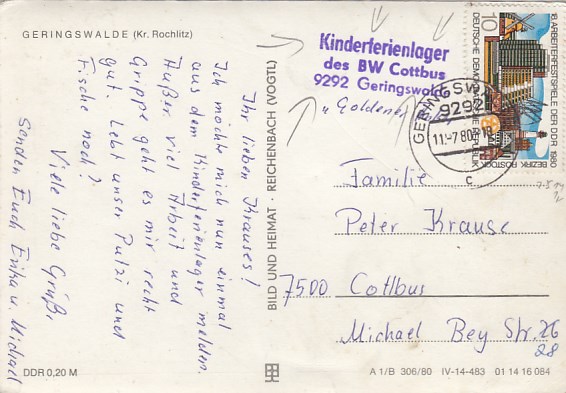 GERINGSWALDE (Kr. Rochlitz)
Ihr lieben Krauses!
Ich möchte mich nun einmal
aus dem Kinderferienlager melden.
Außer viel Arbeit und
Grippe geht es mir recht
gut. Lebt unser Putzi und
Fische noch?
Viele liebe Grüße
senden Euch Erika u. Michael
DDR 0,20 M
BILD UND HEIMAT · REICHENBACH (VOGTL)
Kinderferienlager
des BW Cottbus
9292 Geringswalde
"Goldener
GERINGSWA
9292
11.-7.80
c
18. ARBEITERFESTSPIELE DER DDR 1980
DEUTSCHE DEMOKRATISCHE REPUBLIK
10
BEZIRK ROSTOCK
Familie
Peter Krause
7500 Cottbus
Michael Bey Str.
28
A 1/B 306/80 IV-14-483 01 14 16 084